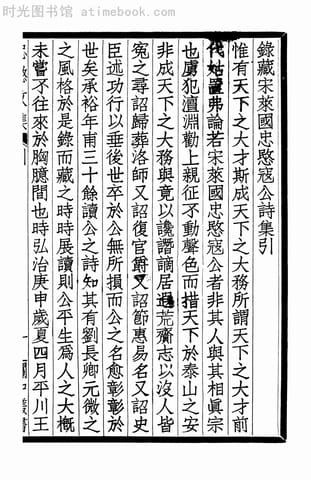 时光图书馆 atimebook.com
錄藏宋萊國忠愍寇公詩集引
惟有天下之大才斯成天下之大務所謂天下之大才前
代姑置弗論若宋萊國忠愍寇公者非其人與其相眞宗
也虜犯澶淵勸上親征不動聲色而措天下於泰山之安
非成天下之大務與竟以讒譖謫居遐荒齎志以沒人皆
寃之尋詔歸葬洛師又詔復官爵又詔節惠易名又詔史
臣述功行以垂後世卒於公無所損而公之名愈彰彰於
世矣承裕年甫三十餘讀公之詩知其有劉長卿元微之
之風格於是錄而藏之時時展讀則公平生爲人之大槪
未嘗不往來於胸臆間也時弘治庚申歲夏四月平川王
忠愍公集 引 一 關中叢書
时光图书馆 atimebook.com